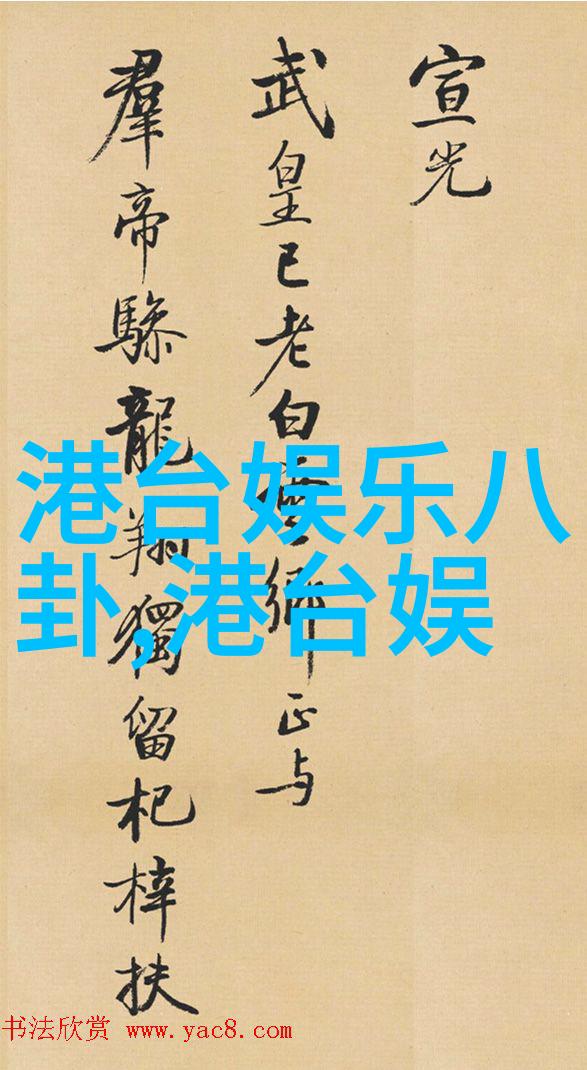 宣光
武皇已老白雲鄉正与
羣帝驂龍翔獨留杞梓扶
港台娱乐八
卦,港台娱
书法欣赏 www.yac8.com